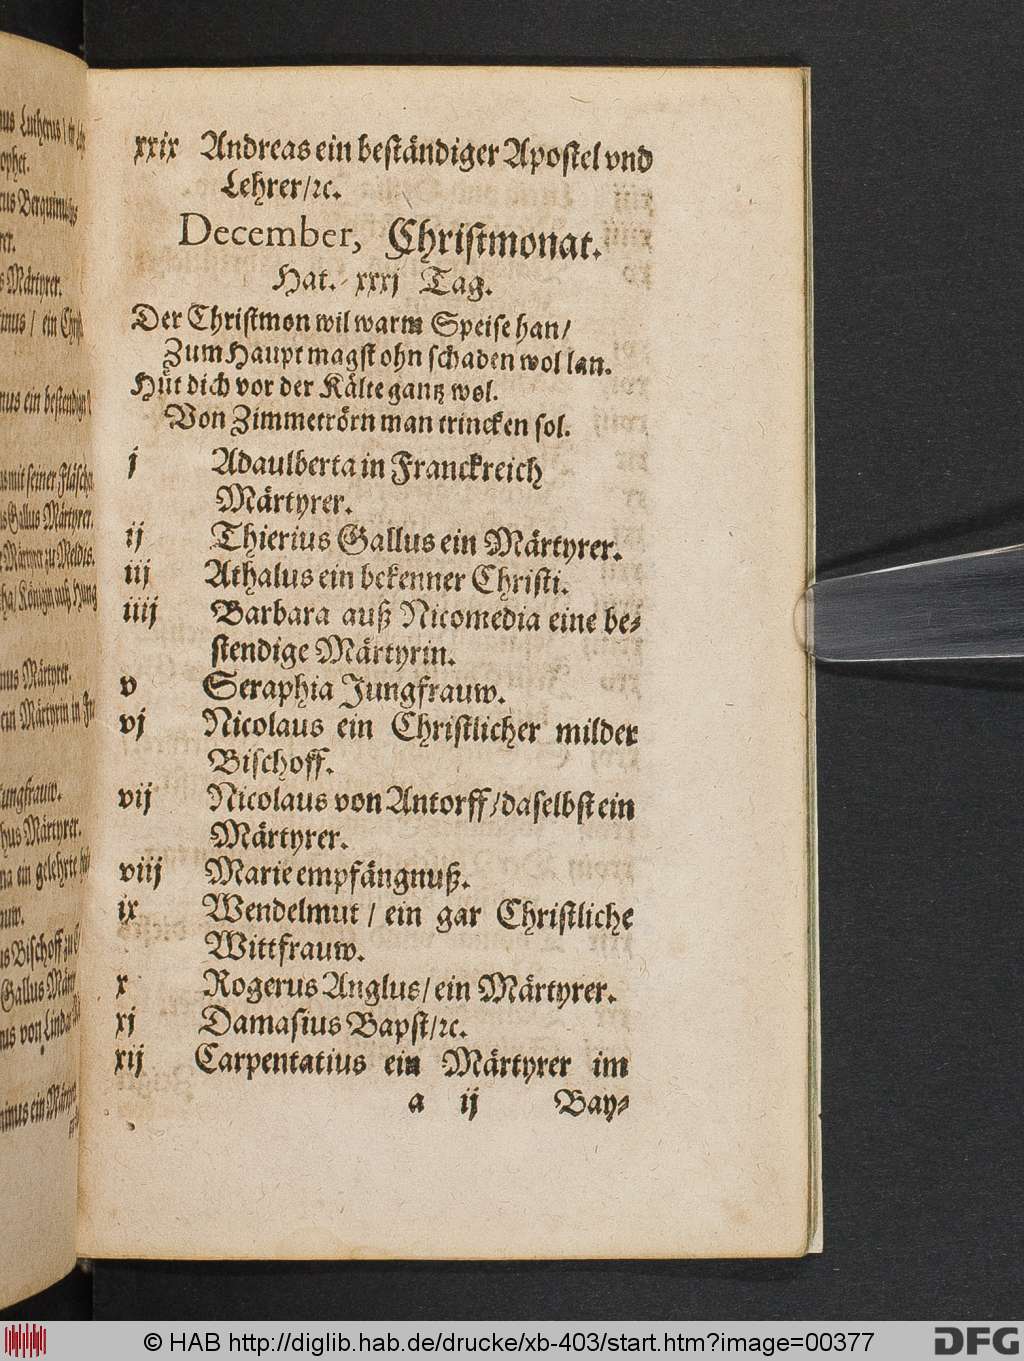 xxix Andreas ein beständiger Apostel vnd
Lehrer/ꝛc.
December, Christmonat.
Hat. xxxj Tag.
Der Christmon wil warm Speise han/
Zum Haupt magst ohn schaden wol lan.
Hüt dich vor der Kälte gantz wol.
Von Zimmetrörn man trincken sol.
j Adaulberta in Franckreich
Märtyrer.
ij Thierius Gallus ein Märtyrer.
iij Athalus ein bekenner Christi.
iiij Barbara auß Nicomedia eine be-
stendige Märtyrin.
v Seraphia Jungfrauw.
vj Nicolaus ein Christlicher milder
Bischoff.
vij Nicolaus von Antorff/daselbst ein
Märtyrer.
viij Marie empfängnuß.
ix Wendelmut / ein gar Christliche
Wittfrauw.
x Rogerus Anglus/ein Märtyrer.
xj Damasius Bapst/ꝛc.
xij Carpentatius ein Märtyrer im
a ij Bay-
© HAB http://diglib.hab.de/drucke/xb-403/start.htm?image=00377
DFG